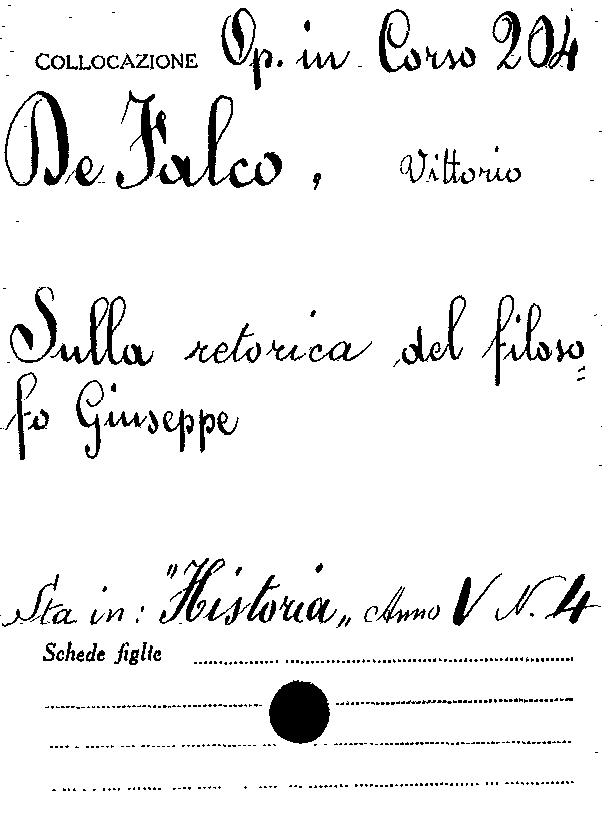 COLLOCAZIONE Op. in Corso 204
De Falco, Vittorio
Sulla retorica del filoso=
fo Giuseppe
Sta in: "Historia„ Anno V N. 4
Schede figlie